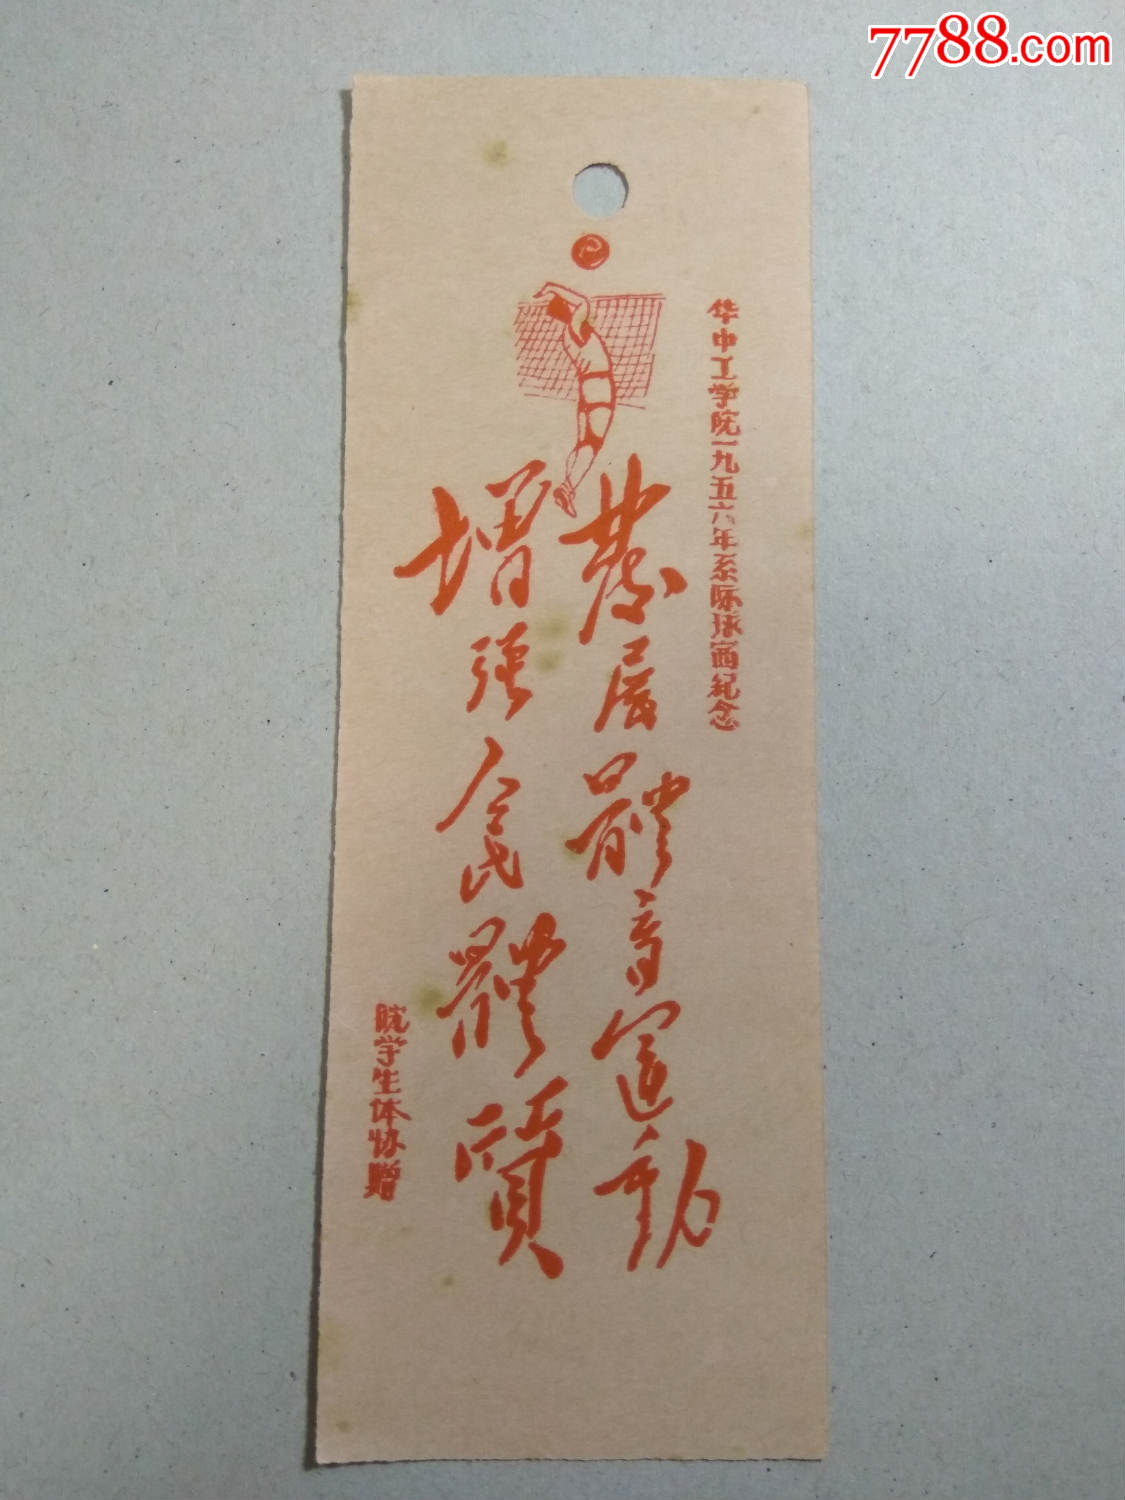 7788.com
华中工学院一九五六年系际球赛纪念
發展體育运動
增强人民體質
院学生体协赠